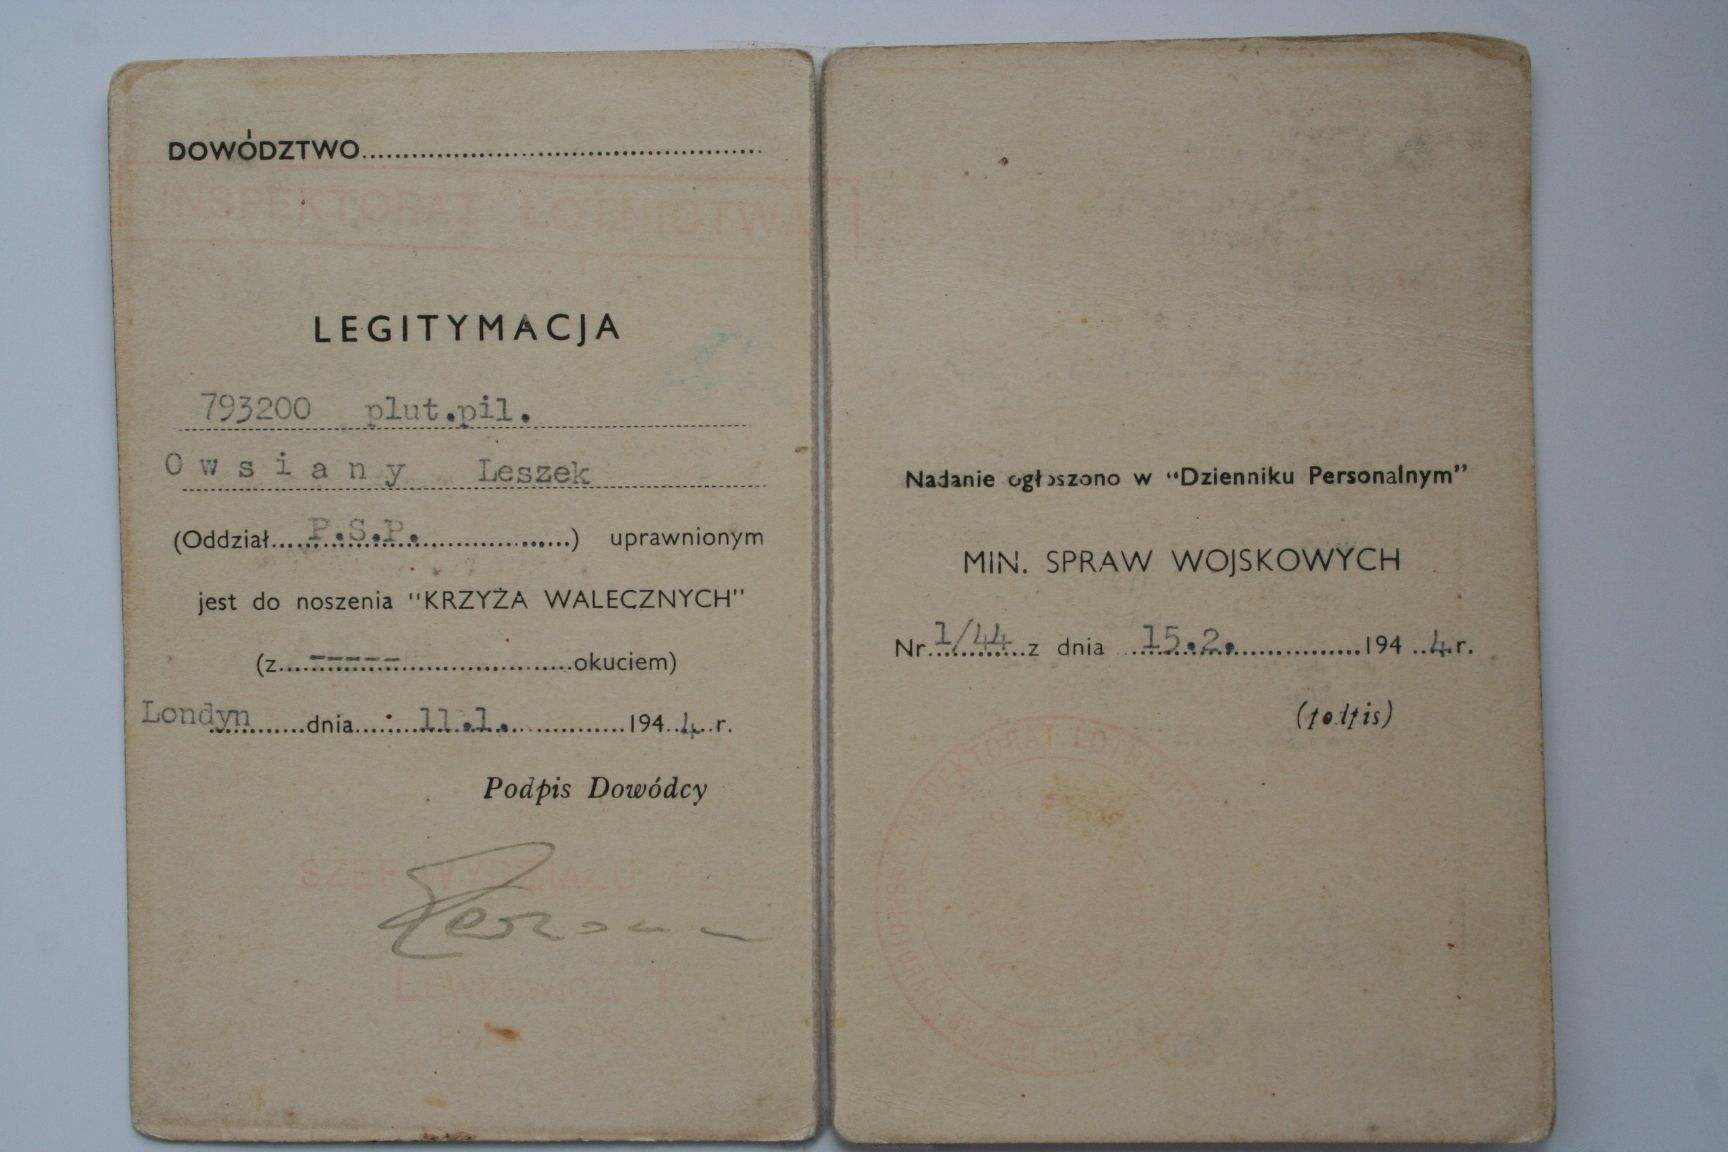 DOWÓDZTWO
INSPEKTORAT LOTNICTWA
LEGITYMACJA
793200 plut.pil.
Owsiany Leszek
(Oddział P.S.P. ) uprawnionym
jest do noszenia "KRZYŻA WALECZNYCH"
(z ----- okuciem)
Londyn dnia 11.1. 194 4 r.
Podpis Dowódcy
SZEF WYDZIAŁU
Nadanie ogłoszono w "Dzienniku Personalnym"
MIN. SPRAW WOJSKOWYCH
Nr 1/44 z dnia 15.2. 194 4 r.
(podpis)
INSPEKTORAT LOTNICTWA